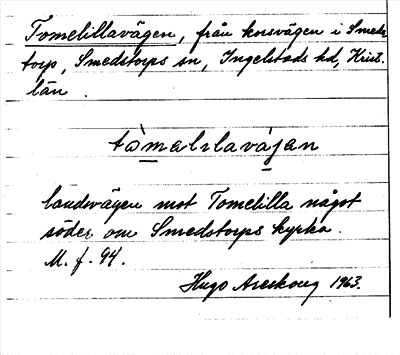 Tomelillavägen, från korsvägen i Smeds
torp, Smedstorps sn, Ingelstads hd, Krist.
län.
tòmalılavàjan
landsvägen mot Tomelilla något
söder om Smedstorps kyrka.
M. f. 94.
Hugo Areskoug 1963.